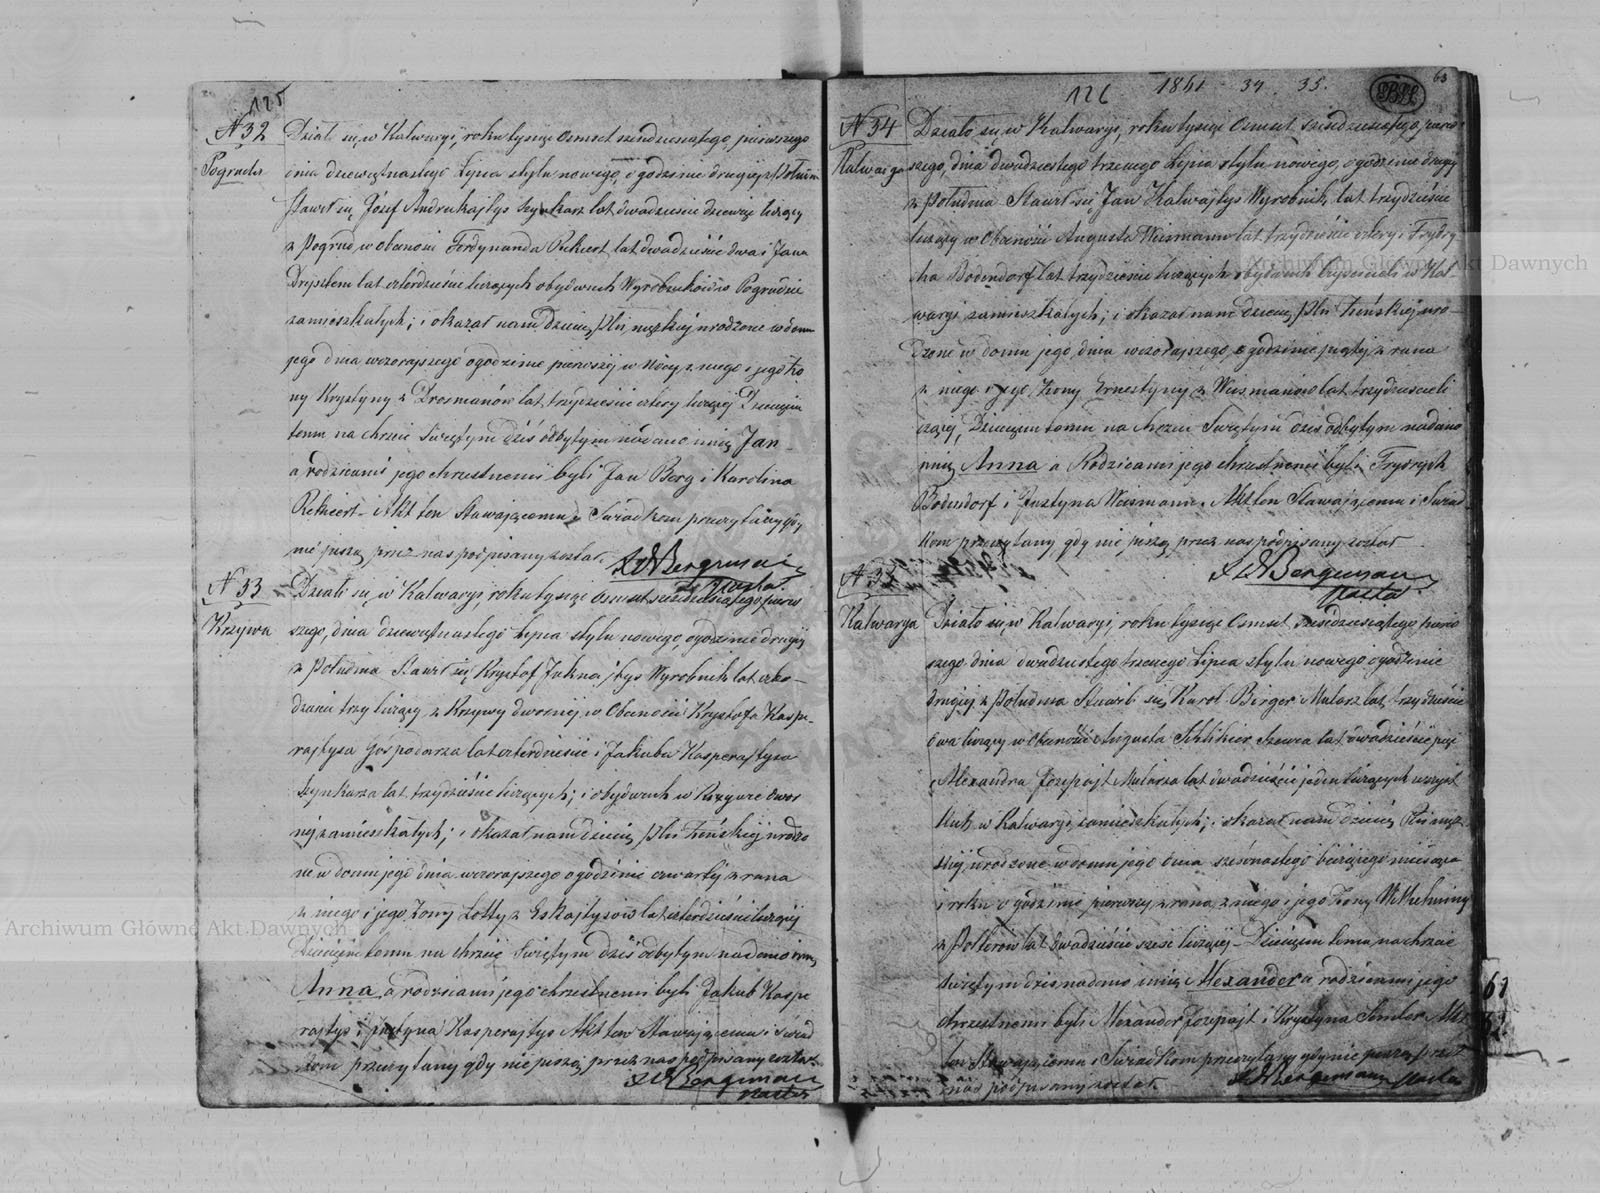 125
N 32
Pogruda
Działo się w Kalwaryi, roku tysiąc Osmset sześdziesiątego pierwszego
dnia dziewiętnastego Lipca stylu nowego, o godzinie drugiej z Połudn
Stawił się Józef Andrukajtys Szynkarz lat dwadzieście dziewięć liczący
z Pogrud w obecności Ferdynanda Rekiert lat dwadzieście dwa i Jana
lat czterdzieście liczących obydwuch Wyrobników w Pogrudzie
zamieszkałych; i okazał nam Dziecię płci męzkiej urodzone w domu
jego dnia wczorajszego o godzinie pierwszej w Nocy z niego i jego Żo
ny Krystyny z Drosmanów lat trzydzieście cztery liczącej Dziecięciu
temu na chrzcie Świętym dziś odbytym nadano imię Jan
a rodzicami jego chrzestnemi byli Jan Berg i Karolina
Rekiert - Akt ten Stawającemu i Świadkom przeczytany gdy
nie piszą przez nas podpisany został. Bergman
Pastor
N 33
Krzywa
Działo się w Kalwaryi, roku tysiąc Osmset sześdziesiątego pierw
szego, dnia dziewiętnastego Lipca stylu nowego, o godzinie drugiej
z Południa Stawił się Krysztof Jukna/tys Wyrobnik lat czter
dzieści trzy liczący z Krzywy dwornej w Obecności Krysztofa Kaspe-
rajtysa Gospodarza lat czterdzieście i Jakuba Kasperajtysa
Szynkarza lat trzydzieście liczących; i obydwuch w Krzywie dwor
nej zamieszkałych; i okazał nam dziecię płci Żeńskiej urodzo
ne w domu jego dnia wczorajszego o godzinie czwartej z rana
z niego i jego Żony Lotty z Eskajtysów lat czterdzieście liczącej
Dziecięciu temu na chrzcie Świętym dziś odbytym nadano imię
Anna, a rodzicami jego chrzestnemi byli Jakub Kaspe
rajtys i Justyna Kasperajtys Akt ten Stawającemu i Świad
kom przeczytany gdy nie piszą przez nas podpisany został.
Bergman
Pastor
126 1861 34. 35. 63
N 34
Kalwarya
Działo się w Kalwaryi, roku tysiąc Osmset sześdziesiątego, pierw
szego, dnia dwudziestego trzeciego Lipca stylu nowego, o godzinie drugiej
z Południa Stawił się Jan Kalwajtys Wyrobnik, lat trzydzieście
liczący w Obecności Augusta Weismann lat trzydzieście cztery i Frydry
cha Bodendorf lat trzydzieście liczących obydwuch w Kal
waryi zamieszkałych; i okazał nam dziecię płci Żeńskiej uro-
dzone w domu jego dnia wczorajszego o godzinie piątej z rana
z niego i jego Żony Ernestyny z Weismanów lat trzydzieście li
czącej, Dziecięciu temu na chrzcie Świętym dziś odbytym nadano
imię Anna a Rodzicami jego chrzestnemi byli Frydrych
Bodendorf i Justyna Weismann. Akt ten Stawającemu i Świad
kom przeczytany gdy nie piszą przez nas podpisany został
Bergman
Pastor
N 35
Kalwarya
Działo się w Kalwaryi, roku tysiąc Osmset sześdziesiątego pierw
szego dnia dwudziestego trzeciego Lipca stylu nowego o godzinie
drugiej z Południa Stawił się Karol Berger Mularz lat trzydzieście
dwa liczący w Obecności Augusta Szewca lat dwadzieście pięć
Alexandra Jozupajt Mularza lat dwadzieście jeden liczących wszyst
kich w Kalwaryi zamieszkałych; i okazał nam dziecię Płci męz
kiej urodzone w domu jego dnia szesnastego bieżącego miesiąca
i roku o godzinie pierwszej z rana z niego i jego Żony Wilhelminy
z lat dwadzieście sześć liczącej - Dziecięciu temu na chrzcie
świętym dziś nadano imię Alexander a rodzicami jego
chrzestnemi byli Alexander Jozupajt i Krystyna Akt
ten Stawającemu i Świadkom przeczytany gdy nie piszą przez
nas podpisany został Bergman Pastor
Archiwum Główne Akt Dawnych
Archiwum Główne Akt Dawnych